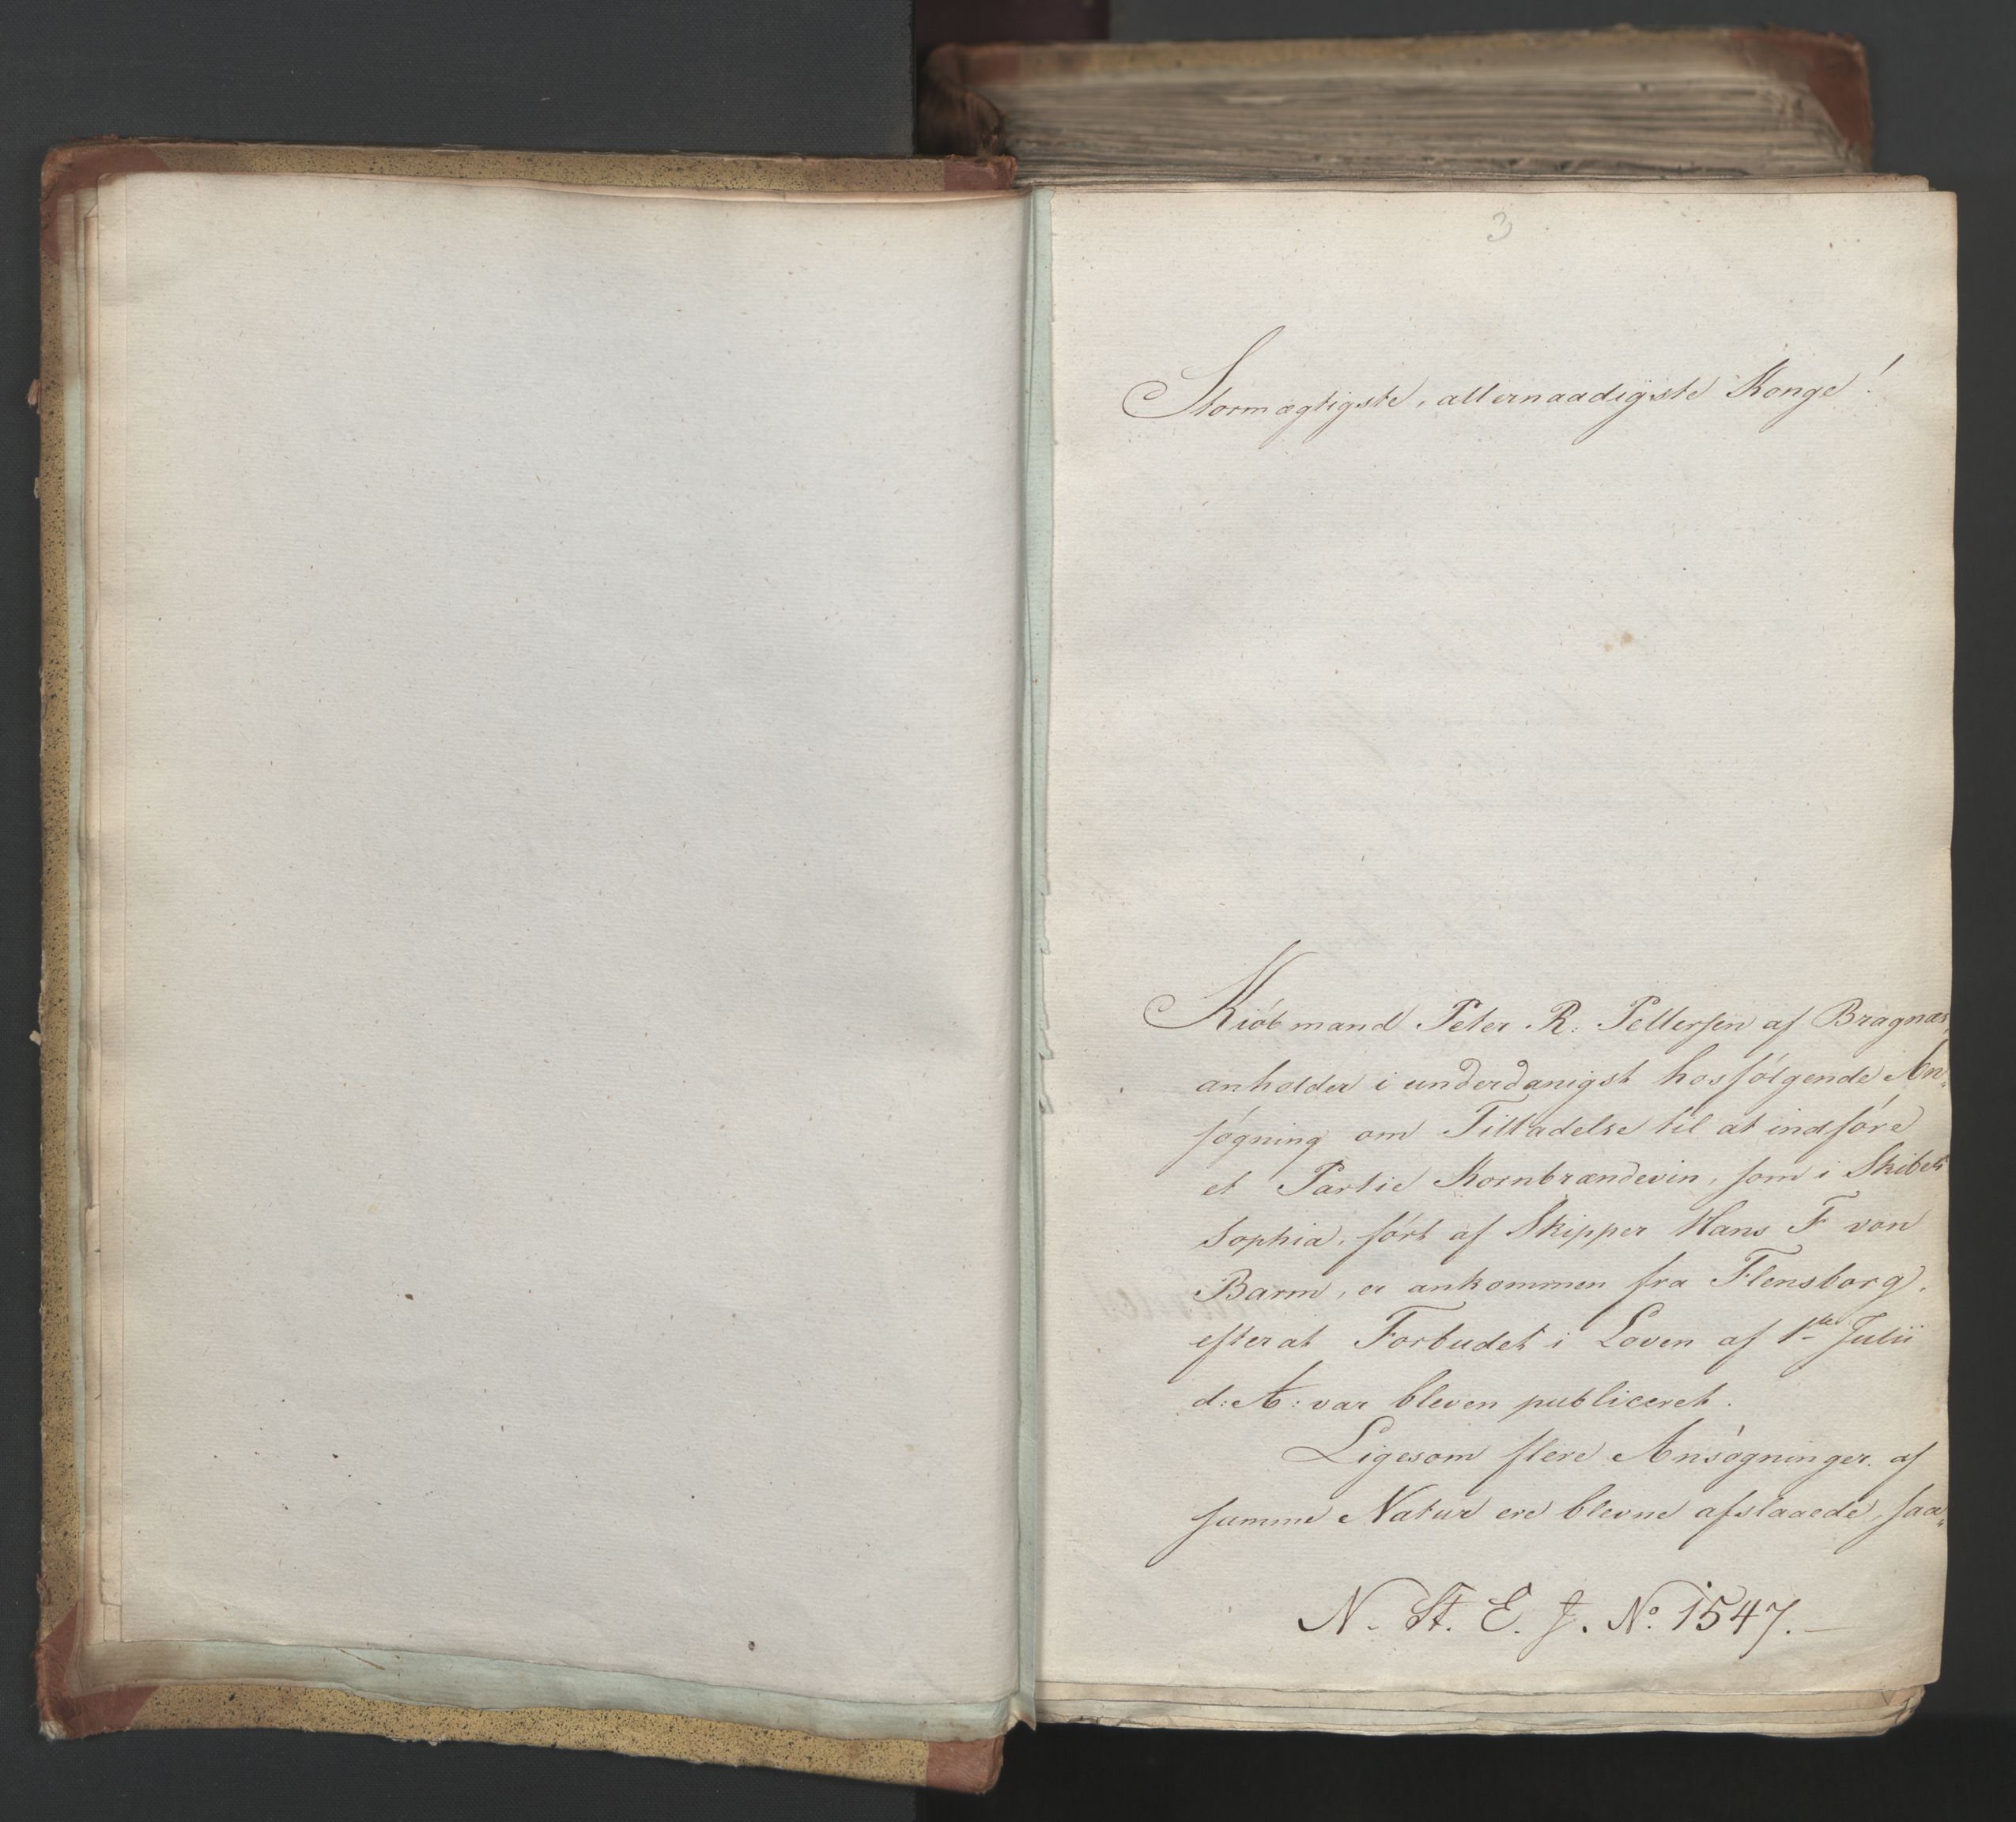 3
Stormægtigste, allernaadigste Konge!
Kiöbmand Peter R: Pettersen af Bragnæs,
anholder i underdanigst hosfölgende An-
sögning om Tilladelse til at indföre
et Partie Kornbrændeviin, som i Skibet
Sophia, fört af Skipper Hans F von
Barm, er ankommen fra Flensborg,
efterat Forbudet i Loven af 1ste Julii
d: A: var bleven publiceret.
Ligesom flere Ansögninger af
samme Natur ere blevne afslaaede, saa-
N. St. E. J. No. 1547.